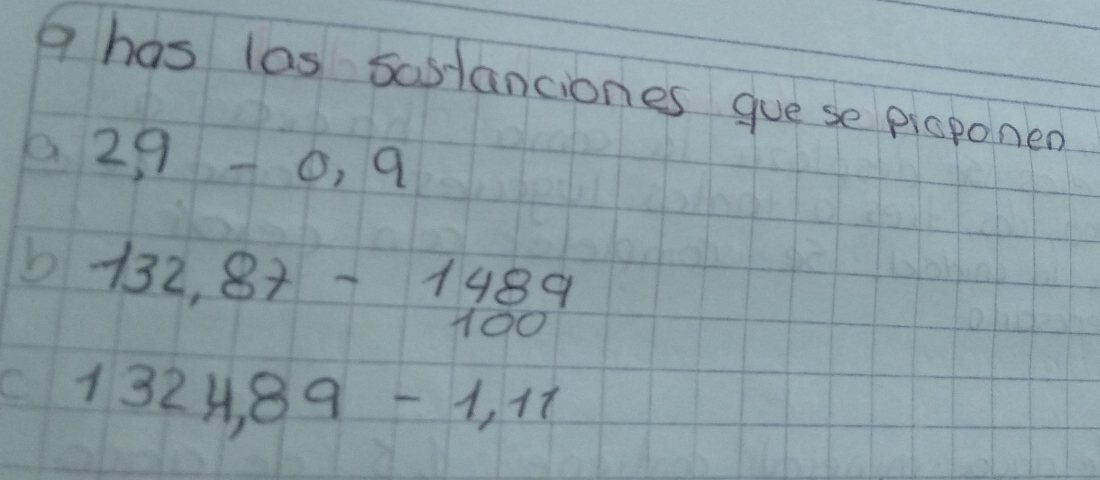 9 has las sastanciones que se proponen
a 2,9 - 0,9
b 132,87 - 1489
100
c 1324,89 - 1,11